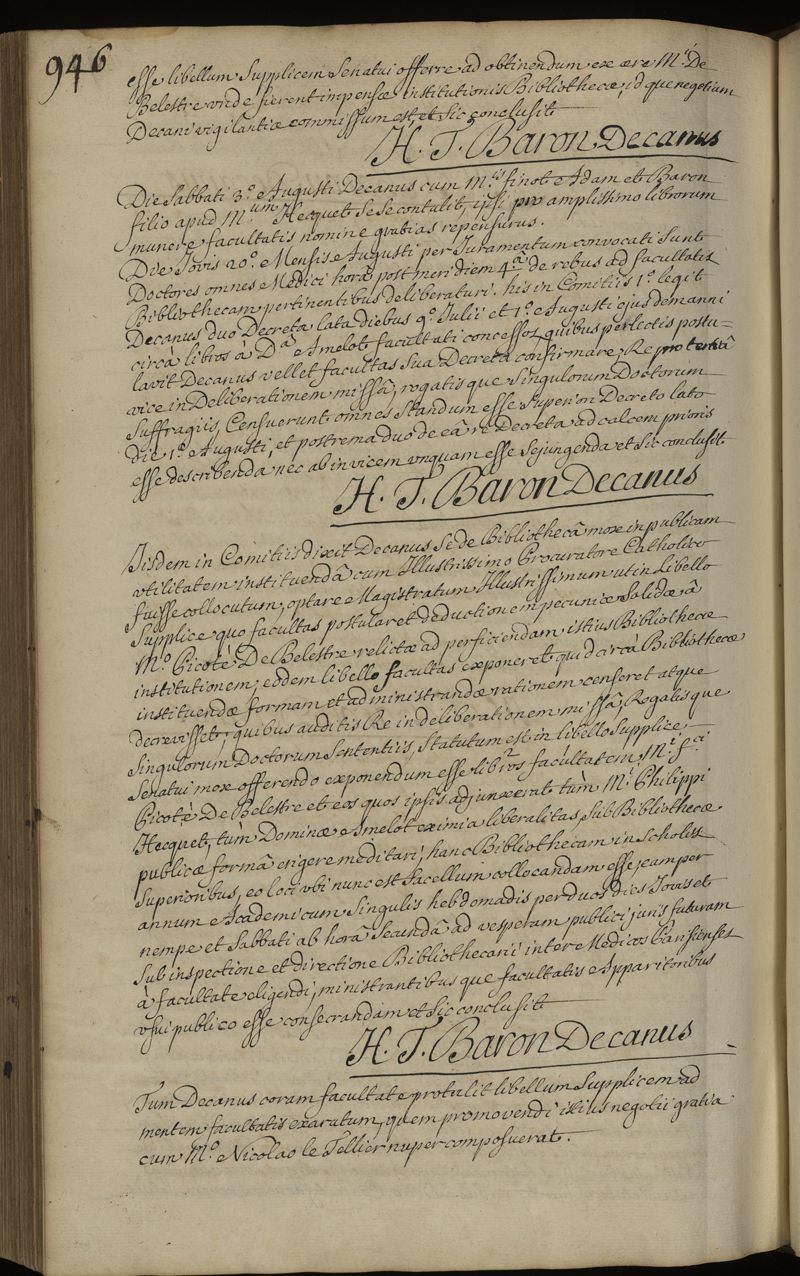 946
esse libellum Supplicem Senatui offerre ad obtinendum ex ære M.ri De
Belestre unde fierent impensæ institutionis Bibliothecæ, idque negotium
Decani vigilantiæ commissum est et sic conclusit
H. T. Baron Decanus
Die Sabbati 3.º Augusti Decanus cum M.ris finot Adam et Baron
filio apud M.um Hecquet Sese contulit, ipsi pro amplissimo librorum
munere facultatis nomine gratias repensurus.
Die Jovis 20.º Mensis Augusti per Juramentum convocati Sunt
Doctores omnes Medici horâ post meridiem 4.â de rebus ad facultatis
Bibliothecam pertinentibus deliberaturi. his in Comitiis 1.º legit
Decanus duo Decreta lata diebus 9.º Julii et 1.º Augusti ejusdem anni
circà libros à D.â Amelot facultati concessos, quibus perlectis postu=
lavit Decanus vellet facultas Sua Decreta confirmare; Re tertiâ
vice in Deliberationem missâ, rogatisque Singulorum Doctorum
Suffragiis, Censuerunt omnes Standum esse Superiori Decreto lato
die 1.º Augusti, et postrema duo de eâ re Decreta ad calcem prioris
esse describenda nec ab invicem unquam esse Sejungenda et Sic conclusit.
H. T. Baron Decanus
Iisdem in Comitiis dixit Decanus Se de Bibliothecâ mox in publicam
utilitatem instituendâ cum Illustrissimo Procuratore Catholico
fuisse collocutum, optare Magistratum Illustrissimum ut in Libello
Supplice quo facultas postularet deductionem pecuniæ Solidæ â
M.º Picoté De Belestre relictæ ad perficiendam istius Bibliothecæ
institutionem, eodem libello facultas exponeret quid circà Bibliothecæ
instituendæ formam et administrandæ rationem censeret atque
decrevisset, quibus auditis Re in deliberationem missâ, Rogatisque
Singulorum Doctorum Sententiis, Statutum est in libello Supplice
Senatui mox offerendo exponendum esse libros facultatem, M.i
Picoté De Belestre et eos quos ipsis adjunxerat tùm M.i Philippi
Hecquet, tùm Dominæ Amelot eximia liberalitas, Sub Bibliothecæ
publicæ formâ erigere meditari; hanc Bibliothecam in Scholis
Superioribus, eo loci ubi nunc est Sacellum collocandam esse, eam per
annum Academicum Singulis hebdomadis per duos dies Jovis et
nempe et Sabbati ab horâ Secundâ ad vesperam publici juris futuram
Sub inspectione et directione Bibliothecarii inter Medicos Parisienses
à facultate eligendi, ministrantibusque facultatis Apparitoribus
usui publico esse consecrandam et Sic conclusit
H. T. Baron Decanus
Tum Decanus coram facultate protulit libellum Supplicem ad
mentem facultatis exaratum, quem promovendi istius negotii gratiâ
cum M.º Nicolao le Tellier nuper composuerat.